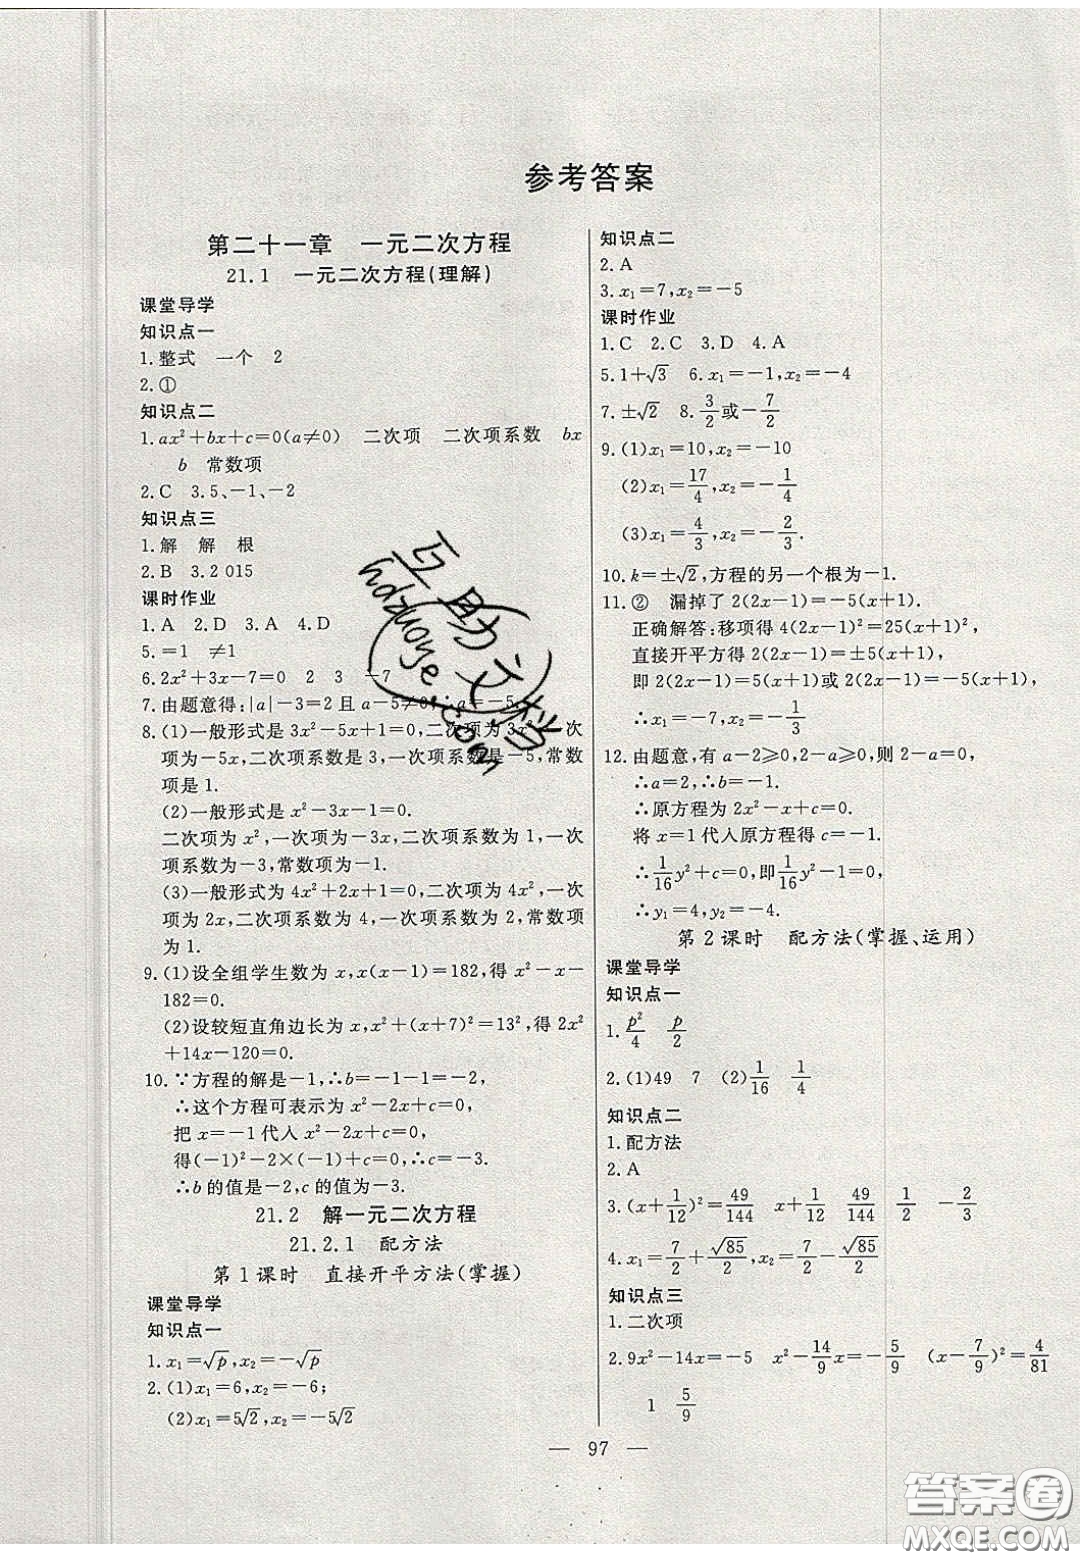 参考答案
第二十一章 一元二次方程
21.1 一元二次方程(理解)
课堂导学
知识点一
1.整式 一个 2
2.①
知识点二
1.ax²+bx+c=0(a≠0) 二次项 二次项系数 bx
b 常数项
2.C 3.5、-1、-2
知识点三
1.解 解 根
2.B 3.2 015
课时作业
1.A 2.D 3.A 4.D
5.=1 ≠1
6.2x²+3x-7=0 2 3 -7
7.由题意得:|a|-3=2 且 a-5≠0,∴a=-5.
8.(1)一般形式是 3x²-5x+1=0,二次项为 3x²,一次
项为-5x,二次项系数是 3,一次项系数是-5,常数
项是 1.
(2)一般形式是 x²-3x-1=0.
二次项为 x²,一次项为-3x,二次项系数为 1,一次
项系数为-3,常数项为-1.
(3)一般形式为 4x²+2x+1=0,二次项为 4x²,一次
项为 2x,二次项系数为 4,一次项系数为 2,常数项
为 1.
9.(1)设全组学生数为 x,x(x-1)=182,得 x²-x-
182=0.
(2)设较短直角边长为 x,x²+(x+7)²=13²,得 2x²
+14x-120=0.
10.∵方程的解是-1,∴b=-1-1=-2,
∴这个方程可表示为 x²-2x+c=0,
把 x=-1 代人 x²-2x+c=0,
得(-1)²-2×(-1)+c=0,∴c=-3.
∴b 的值是-2,c 的值为-3.
21.2 解一元二次方程
21.2.1 配方法
第 1 课时 直接开平方法(掌握)
课堂导学
知识点一
1.x₁=√p,x₂=-√p
2.(1)x₁=6,x₂=-6;
(2)x₁=5√2,x₂=-5√2
知识点二
2.A
3.x₁=7,x₂=-5
课时作业
1.C 2.C 3.D 4.A
5.1+√3 6.x₁=-1,x₂=-4
7.±√2 8.3/2或-7/2
9.(1)x₁=10,x₂=-10
(2)x₁=17/4,x₂=-1/4
(3)x₁=4/3,x₂=-2/3.
10.k=±√2,方程的另一个根为-1.
11.② 漏掉了 2(2x-1)=-5(x+1).
正确解答:移项得 4(2x-1)²=25(x+1)²,
直接开平方得 2(2x-1)=±5(x+1),
即 2(2x-1)=5(x+1)或 2(2x-1)=-5(x+1),
∴x₁=-7,x₂=-1/3
12.由题意,有 a-2≥0,2-a≥0,则 2-a=0,
∴a=2,∴b=-1.
∴原方程为 2x²-x+c=0.
将 x=1 代人原方程得 c=-1.
∴1/16y²+c=0,即1/16y²-1=0,
∴y₁=4,y₂=-4.
第 2 课时 配方法(掌握、运用)
课堂导学
知识点一
1.p²/4 p/2
2.(1)49 7 (2)1/16 1/4
知识点二
1.配方法
2.A
3.(x+1/12)²=49/144 x+1/12 49/144 1/2 -2/3
4.x₁=7/2+√85/2,x₂=7/2-√85/2
知识点三
1.二次项
2.9x²-14x=-5 x²-14/9x=-5/9 (x-7/9)²=4/81
1 5/9
— 97 —
互助文档
hdzuoye.com
答案圈
MXQE.COM